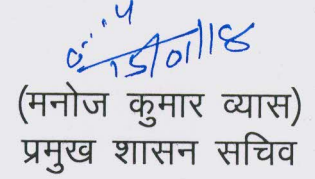 15/01/18
(मनोज कुमार व्यास)
प्रमुख शासन सचिव